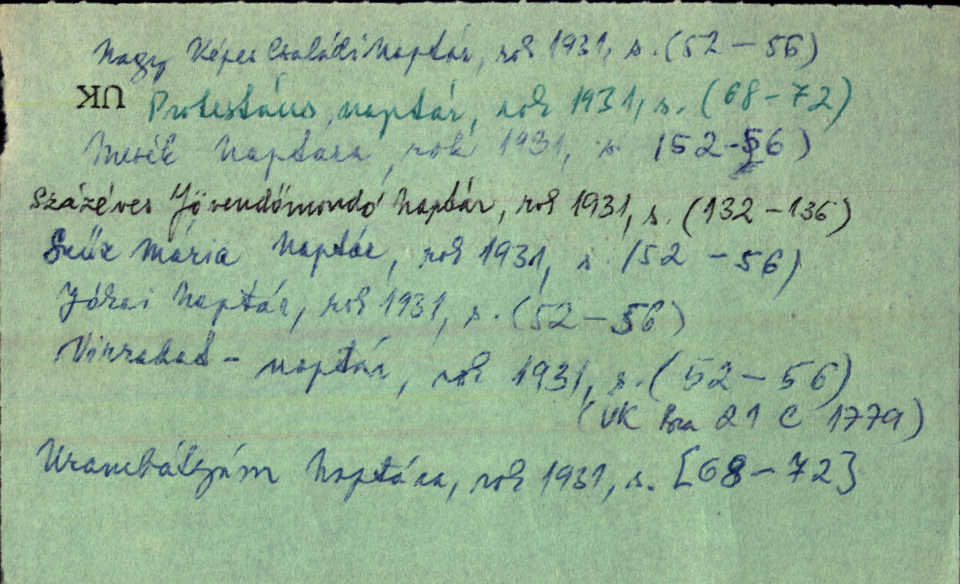 Nagy Képes Családi Naptár, rok 1931, s. (52-56)
UK Protestáns naptár, rok 1931, s. (68-72)
Mesék Naptára, rok 1931, s. (52-56)
Százéves Jövendőmondó Naptár, rok 1931, s. (132-136)
Szűz Mária Naptár, rok 1931, s. (52-56)
Jókai Naptár, rok 1931, s. (52-56)
naptár, rok 1931, s. (52-56)
(UK Bra 21 C 1779)
Urambátyám Naptára, rok 1931, s. [68-72]